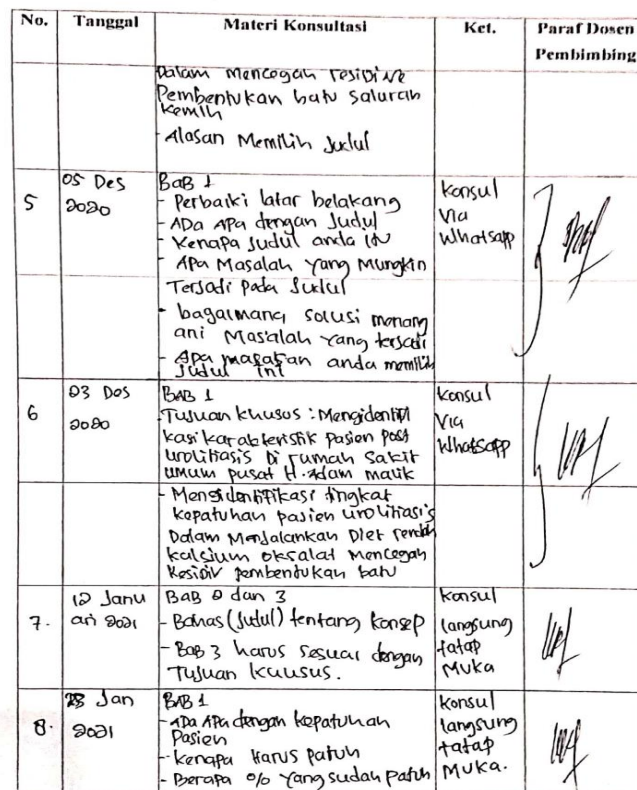 No. Tanggal Materi Konsultasi Ket. Paraf Dosen
Pembimbing
Dalam mencegah residive
Pembentukan batu saluran
kemih
- Alasan Memilih Judul
5 05 Des 2020
BAB 1
- Perbaiki latar belakang
- ADa APa dengan Judul
- Kenapa Judul anda ini
- APa Masalah Yang Mungkin
Terjadi Pada Judul
- bagaimana solusi menang
ani Masalah Yang terjadi
- Apa anda memilih
Judul ini
Konsul
Via
Whatsapp
6 23 Des 2020
BAB 1
- Tujuan khusus : Mengidentifi
kasi karakteristik Pasien Post
urolitiasis Di rumah sakit
umum pusat H. Adam malik
- Mengidentifikasi tingkat
kepatuhan pasien urolitiasis
Dalam Menjalankan Diet rendah
kalsium oksalat Mencegah
Residiv pembentukan batu
Konsul
Via
Whatsapp
7. 12 Janu
ari 2021
BAB 2 dan 3
- Bahas (Judul) tentang konsep
- Bab 3 harus sesuai dengan
Tujuan khusus.
konsul
langsung
tatap
Muka
8. Jan
2021
BAB 1
- ADa APa dengan kepatuhan
Pasien
- Kenapa Harus patuh
- Berapa % Yang sudah patuh
konsul
langsung
tatap
Muka.